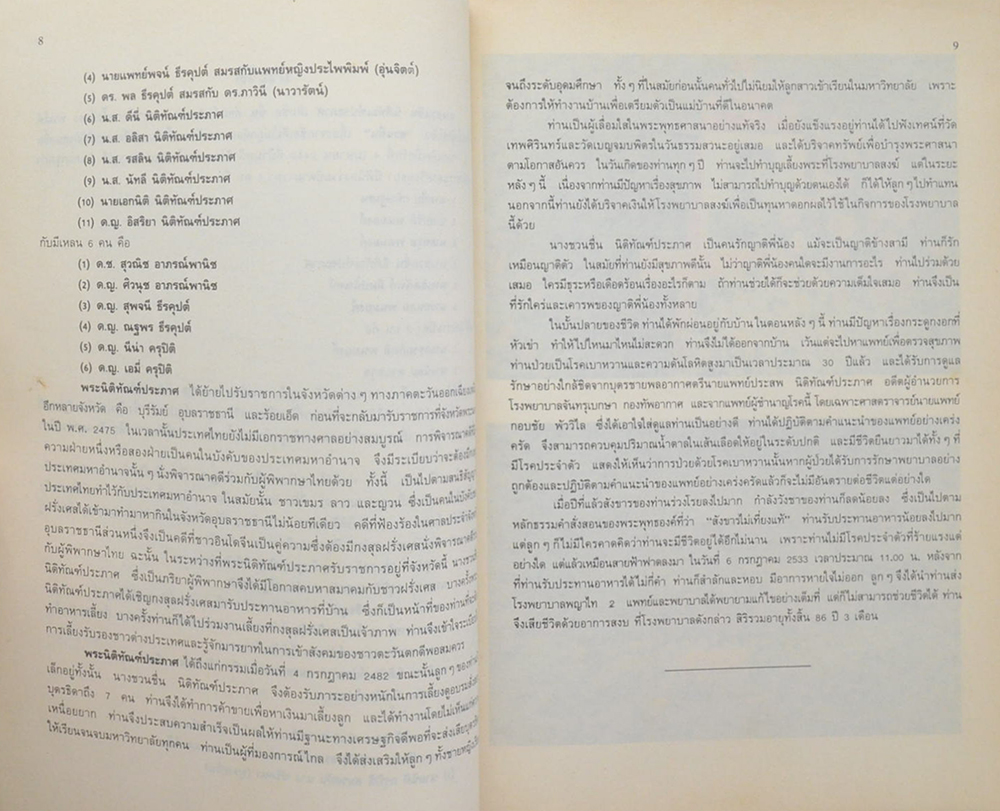 8
(4) นายแพทย์พจน์ ธีรคุปต์ สมรสกับแพทย์หญิงประไพพิมพ์ (อุ่นจิตต์)
(5) ดร. พล ธีรคุปต์ สมรสกับ ดร.ภาวินี (นาวารัตน์)
(6) น.ส. ดีนี่ นิติทัณฑ์ประภาศ
(7) น.ส. อลิสา นิติทัณฑ์ประภาศ
(8) น.ส. รสลิน นิติทัณฑ์ประภาศ
(9) น.ส. นัทลี นิติทัณฑ์ประภาศ
(10) นายเอกนิติ นิติทัณฑ์ประภาศ
(11) ด.ญ. อิสริยา นิติทัณฑ์ประภาศ
กับมีเหลน 6 คน คือ
(1) ด.ช. สุวณิช อาภรณ์พานิช
(2) ด.ญ. ศิวนุช อาภรณ์พานิช
(3) ด.ญ. สุพจนี ธีรคุปต์
(4) ด.ญ. ณฐพร ธีรคุปต์
(5) ด.ญ. นีน่า ครุปิติ
(6) ด.ญ. เอมี่ ครุปิติ
พระนิติทัณฑ์ประภาศ ได้ย้ายไปรับราชการในจังหวัดต่าง ๆ ทางภาคตะวันออกเฉียงเหนือ
อีกหลายจังหวัด คือ บุรีรัมย์ อุบลราชธานี และร้อยเอ็ด ก่อนที่จะกลับมารับราชการที่จังหวัด
ในปี พ.ศ. 2475 ในเวลานั้นประเทศไทยยังไม่มีเอกราชทางศาลอย่างสมบูรณ์ การพิจารณาคดี
ความฝ่ายหนึ่งหรือสองฝ่ายเป็นคนในบังคับของประเทศมหาอำนาจ จึงมีระเบียบว่าจะต้อง
ประเทศมหาอำนาจนั้น ๆ นั่งพิจารณาคดีร่วมกับผู้พิพากษาไทยด้วย ทั้งนี้ เป็นไปตามสนธิสัญญา
ประเทศไทยทำไว้กับประเทศมหาอำนาจ ในสมัยนั้น ชาวเขมร ลาว และญวน ซึ่งเป็นคนในบังคับ
ฝรั่งเศสได้เข้ามาทำมาหากินในจังหวัดอุบลราชธานีไม่น้อยทีเดียว คดีที่ฟ้องร้องในศาลประจำ
อุบลราชธานีส่วนหนึ่งจึงเป็นคดีที่ชาวอินโดจีนเป็นคู่ความซึ่งต้องมีกงสุลฝรั่งเศสนั่งพิจารณาคดี
กับผู้พิพากษาไทย ฉะนั้น ในระหว่างที่พระนิติทัณฑ์ประภาศรับราชการอยู่ที่จังหวัดนี้
นิติทัณฑ์ประภาศ ซึ่งเป็นภริยาผู้พิพากษาจึงได้มีโอกาสคบหาสมาคมกับชาวฝรั่งเศส บางครั้ง
นิติทัณฑ์ประภาศได้เชิญกงสุลฝรั่งเศสมารับประทานอาหารที่บ้าน ซึ่งก็เป็นหน้าที่ของท่าน
ทำอาหารเลี้ยง บางครั้งท่านก็ได้ไปร่วมงานเลี้ยงที่กงสุลฝรั่งเศสเป็นเจ้าภาพ ท่านจึงเข้าใจ
การเลี้ยงรับรองชาวต่างประเทศและรู้จักมารยาทในการเข้าสังคมของชาวตะวันตกดีพอสมควร
พระนิติทัณฑ์ประภาศ ได้ถึงแก่กรรมเมื่อวันที่ 4 กรกฎาคม 2482 ขณะนั้นลูก ๆ ของท่าน
เล็กอยู่ทั้งนั้น นางชวนชื่น นิติทัณฑ์ประภาศ จึงต้องรับภาระอย่างหนักในการเลี้ยงดูอบรม
บุตรธิดาถึง 7 คน ท่านจึงได้ทำการค้าขายเพื่อหาเงินมาเลี้ยงลูก และได้ทำงานโดยไม่เห็นแก่
เหนื่อยยาก ท่านจึงประสบความสำเร็จเป็นผลให้ท่านมีฐานะทางเศรษฐกิจดีพอที่จะส่งเสีย
ให้เรียนจนจบมหาวิทยาลัยทุกคน ท่านเป็นผู้ที่มองการณ์ไกล จึงได้ส่งเสริมให้ลูก ๆ ทั้งชาย
9
จนถึงระดับอุดมศึกษา ทั้ง ๆ ที่ในสมัยก่อนนั้นคนทั่วไปไม่นิยมให้ลูกสาวเข้าเรียนในมหาวิทยาลัย เพราะ
ต้องการให้ทำงานบ้านเพื่อเตรียมตัวเป็นแม่บ้านที่ดีในอนาคต
ท่านเป็นผู้เลื่อมใสในพระพุทธศาสนาอย่างแท้จริง เมื่อยังแข็งแรงอยู่ท่านได้ไปฟังเทศน์ที่วัด
เทพศิรินทร์และวัดเบญจมบพิตรในวันธรรมสวนะอยู่เสมอ และได้บริจาคทรัพย์เพื่อบำรุงพระศาสนา
ตามโอกาสอันควร ในวันเกิดของท่านทุก ๆ ปี ท่านจะไปทำบุญเลี้ยงพระที่โรงพยาบาลสงฆ์ แต่ในระยะ
หลัง ๆ นี้ เนื่องจากท่านมีปัญหาเรื่องสุขภาพ ไม่สามารถไปทำบุญด้วยตนเองได้ ก็ได้ให้ลูก ๆ ไปทำแทน
นอกจากนี้ท่านยังได้บริจาคเงินให้โรงพยาบาลสงฆ์เพื่อเป็นทุนหาดอกผลไว้ใช้ในกิจการของโรงพยาบาล
นี้ด้วย
นางชวนชื่น นิติทัณฑ์ประภาศ เป็นคนรักญาติพี่น้อง แม้จะเป็นญาติข้างสามี ท่านก็รัก
เหมือนญาติตัว ในสมัยที่ท่านยังมีสุขภาพดีนั้น ไม่ว่าญาติพี่น้องคนใดจะมีงานการอะไร ท่านไปร่วมด้วย
เสมอ ใครมีธุระหรือเดือดร้อนเรื่องอะไรก็ตาม ถ้าท่านช่วยได้ก็จะช่วยด้วยความเต็มใจเสมอ ท่านจึงเป็น
ที่รักใคร่และเคารพของญาติพี่น้องทั้งหลาย
ในบั้นปลายของชีวิต ท่านได้พักผ่อนอยู่กับบ้าน ในตอนหลัง ๆ นี้ ท่านมีปัญหาเรื่องกระดูกงอกที่
หัวเข่า ทำให้ไปไหนมาไหนไม่สะดวก ท่านจึงไม่ได้ออกจากบ้าน เว้นแต่จะไปหาแพทย์เพื่อตรวจสุขภาพ
ท่านป่วยเป็นโรคเบาหวานและความดันโลหิตสูงมาเป็นเวลาประมาณ 30 ปีแล้ว และได้รับการดูแล
รักษาอย่างใกล้ชิดจากบุตรชายพลอากาศตรีนายแพทย์ประสพ นิติทัณฑ์ประภาศ อดีตผู้อำนวยการ
โรงพยาบาลจันทรุเบกษา กองทัพอากาศ และจากแพทย์ผู้ชำนาญโรคนี้ โดยเฉพาะศาสตราจารย์นายแพทย์
กอบชัย พัววิไล ซึ่งได้เอาใจใส่ดูแลท่านเป็นอย่างดี ท่านได้ปฏิบัติตามคำแนะนำของแพทย์อย่างเคร่ง
ครัด จึงสามารถควบคุมปริมาณน้ำตาลในเส้นเลือดให้อยู่ในระดับปกติ และมีชีวิตยืนยาวมาได้ทั้ง ๆ ที่
มีโรคประจำตัว แสดงให้เห็นว่าการป่วยด้วยโรคเบาหวานนั้นหากผู้ป่วยได้รับการรักษาพยาบาลอย่าง
ถูกต้องและปฏิบัติตามคำแนะนำของแพทย์อย่างเคร่งครัดแล้วก็จะไม่มีอันตรายต่อชีวิตแต่อย่างใด
เมื่อปีที่แล้วสังขารของท่านร่วงโรยลงไปมาก กำลังวังชาของท่านก็ลดน้อยลง ซึ่งเป็นไปตาม
หลักธรรมคำสั่งสอนของพระพุทธองค์ที่ว่า "สังขารไม่เที่ยงแท้" ท่านรับประทานอาหารน้อยลงไปมาก
แต่ลูก ๆ ก็ไม่มีใครคาดคิดว่าท่านจะมีชีวิตอยู่ได้อีกไม่นาน เพราะท่านไม่มีโรคประจำตัวที่ร้ายแรงแต่
อย่างใด แต่แล้วเหมือนสายฟ้าฟาดลงมา ในวันที่ 6 กรกฎาคม 2533 เวลาประมาณ 11.00 น. หลังจาก
ที่ท่านรับประทานอาหารได้ไม่กี่คำ ท่านก็สำลักและหอบ มีอาการหายใจไม่ออก ลูก ๆ จึงได้นำท่านส่ง
โรงพยาบาลพญาไท 2 แพทย์และพยาบาลได้พยายามแก้ไขอย่างเต็มที่ แต่ก็ไม่สามารถช่วยชีวิตได้ ท่าน
จึงเสียชีวิตด้วยอาการสงบ ที่โรงพยาบาลดังกล่าว สิริรวมอายุทั้งสิ้น 86 ปี 3 เดือน